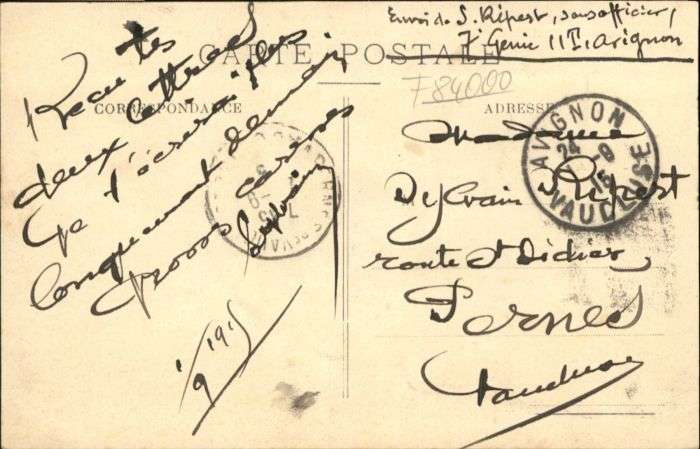 Envoi de S. Ripert, sous officier,
7e Génie 11T, Avignon
CARTE POSTALE
F84000
CORRESPONDANCE
ADRESSE
Reçu tes
deux lettres
Je t'écrirai plus
longuement demain
Grosses caresses
Sylvain
9 1915
AVIGNON
24
VAUCLUSE
Madame
Sylvain Ripert
route St Didier
Pernes
Vaucluse